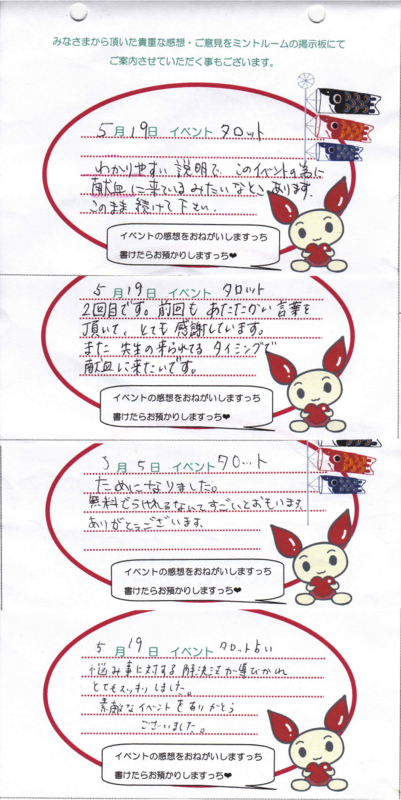 みなさまから頂いた貴重な感想・ご意見をミントルームの掲示板にて
ご案内させていただく事もございます。
5月19日 イベント タロット
わかりやすい説明で、このイベントの為に
献血に来ているみたいなとこあります。
このまま続けて下さい。
イベントの感想をおねがいしますっち
書けたらお預かりしますっち❤
5月19日 イベント タロット
2回目です。前回もあたたかい言葉を
頂いて、とても感謝しています。
また先生の来られてるタイミングで
献血に来たいです。
イベントの感想をおねがいしますっち
書けたらお預かりしますっち❤
月5日 イベント タロット
ためになりました。
無料でうけれるなんてすごいとおもいます。
ありがとうございます。
イベントの感想をおねがいしますっち
書けたらお預かりしますっち❤
5月19日 イベント タロット占い
悩み事に対する解決法が導びかれ
とてもスッキリしました。
素敵なイベントをありがとう
ございました。
イベントの感想をおねがいしますっち
書けたらお預かりしますっち❤